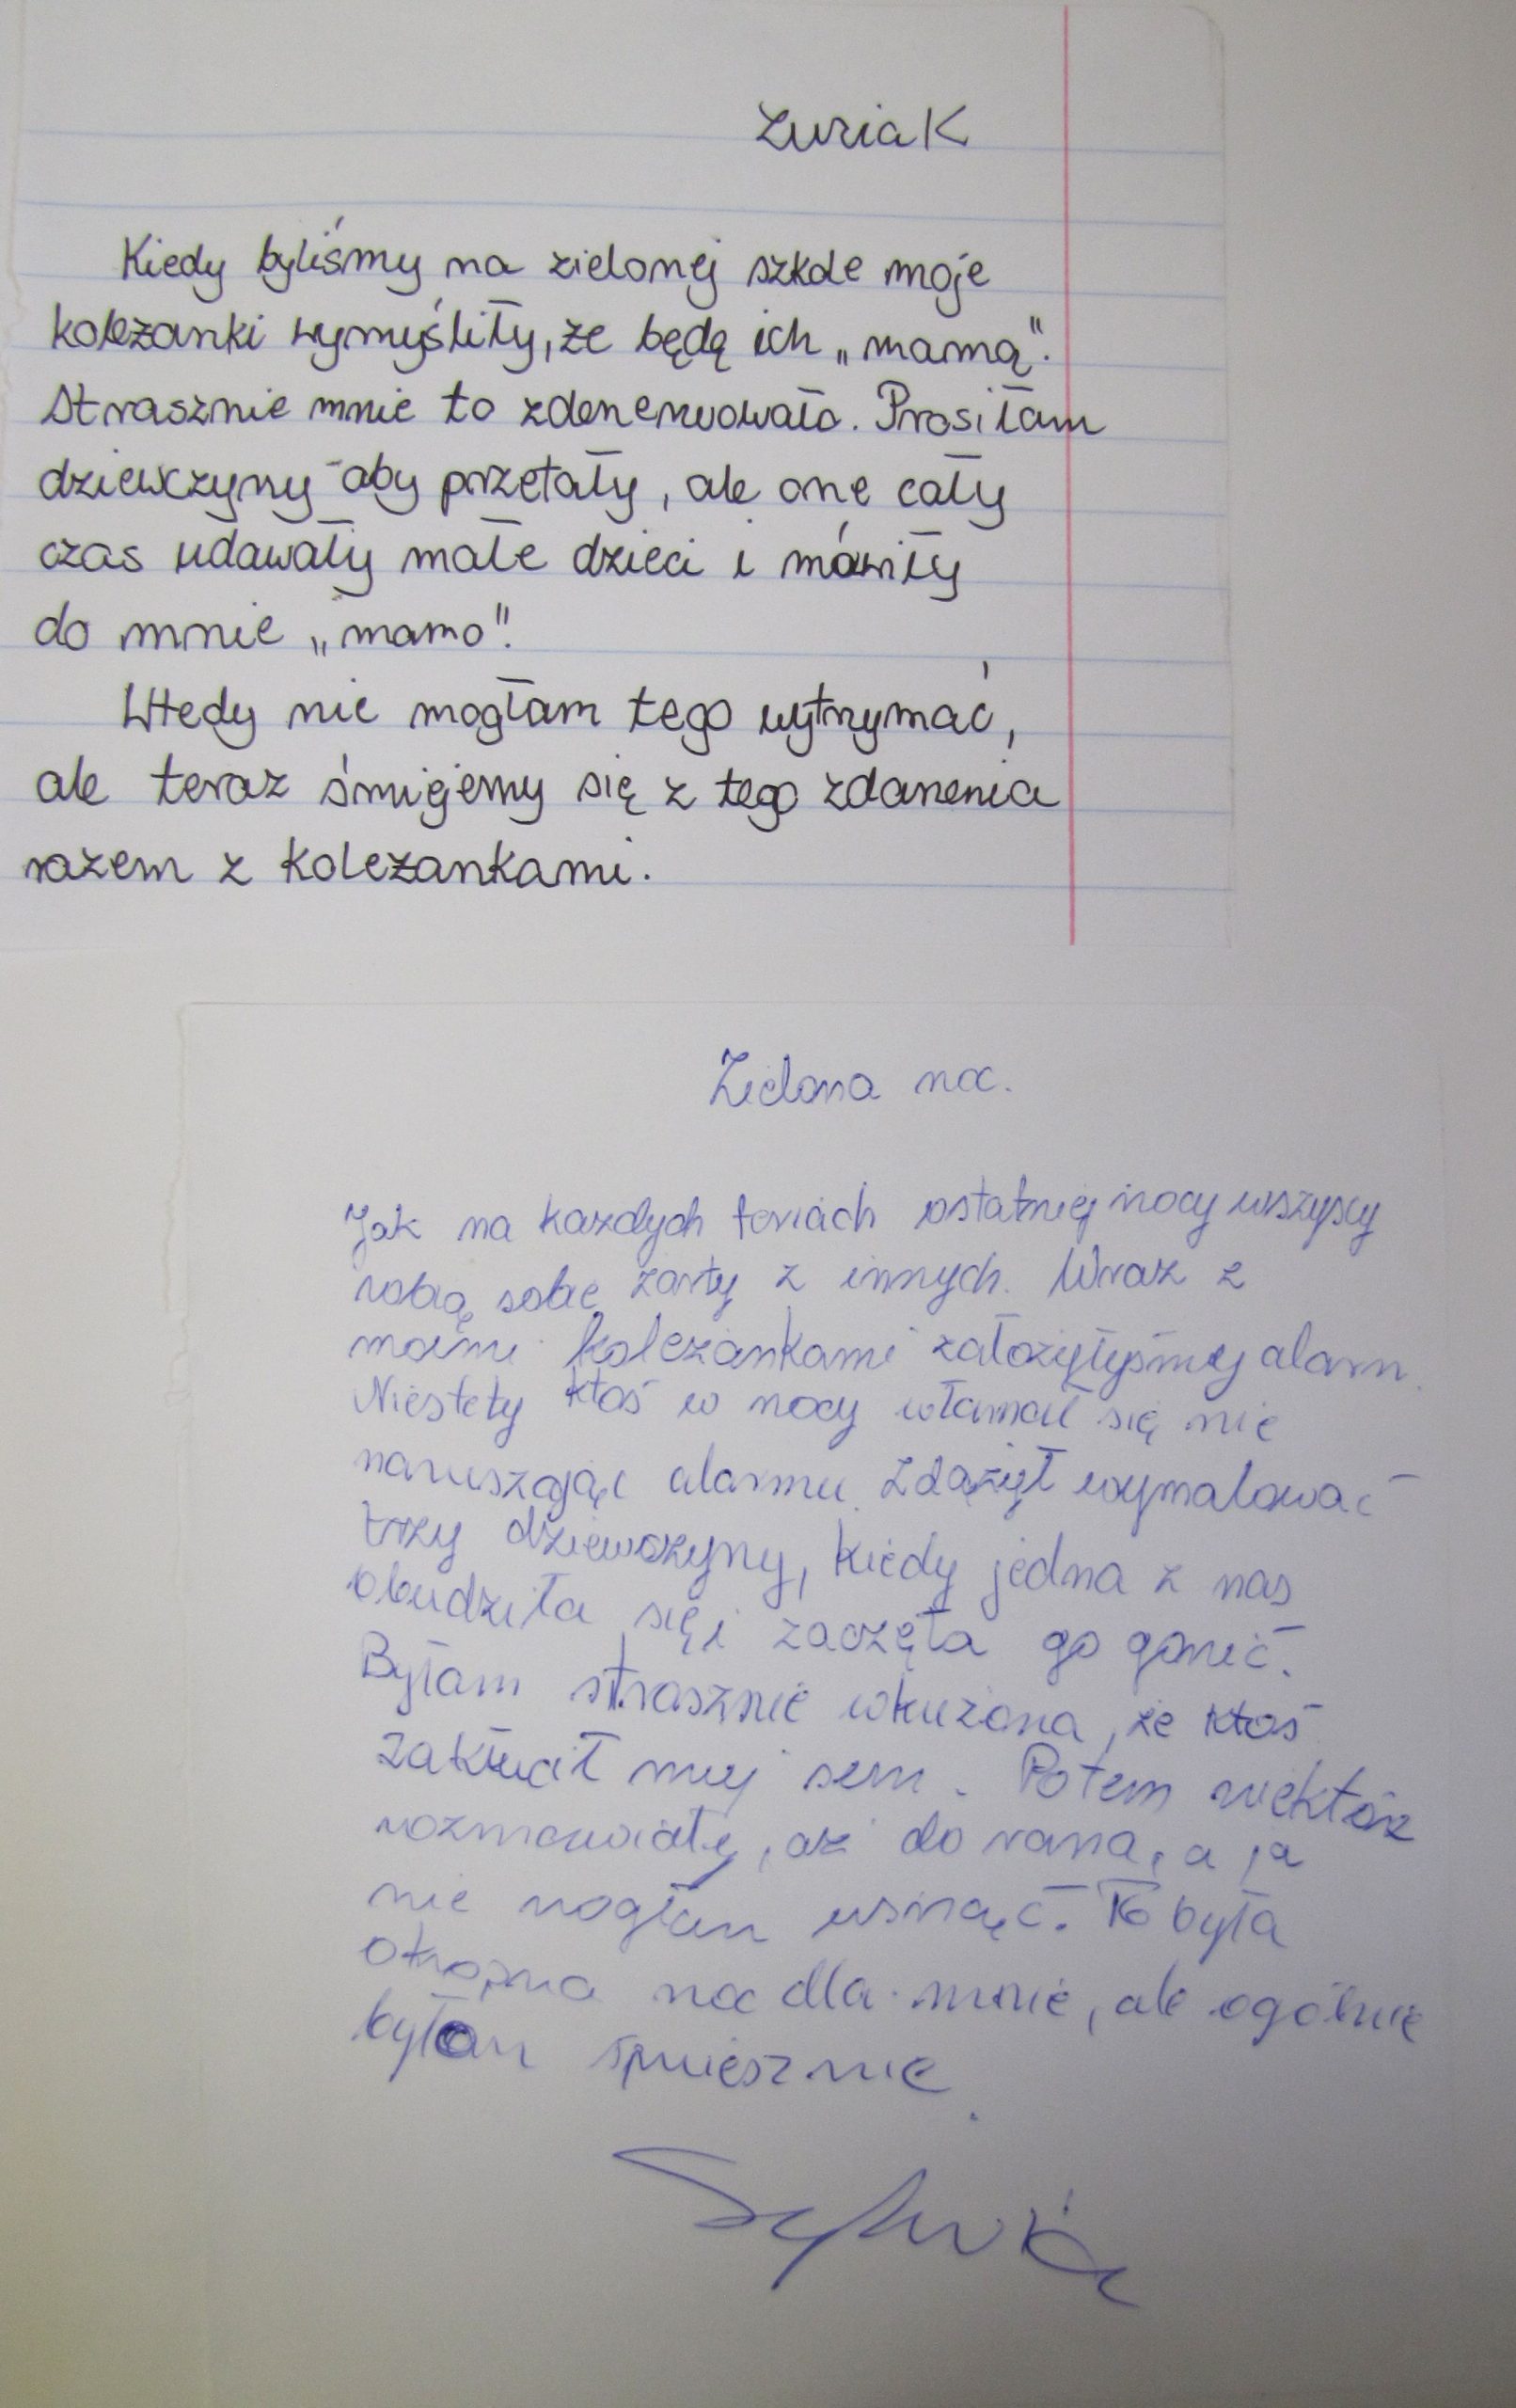 Zuzia K
Kiedy byliśmy na zielonej szkole moje
koleżanki wymyśliły, że będę ich „mamą".
Strasznie mnie to zdenerwowało. Prosiłam
dziewczyny aby przetały, ale one cały
czas udawały małe dzieci i mówiły
do mnie „mamo".
Wtedy nie mogłam tego wytrzymać,
ale teraz śmiejemy się z tego zdarzenia
razem z koleżankami.
Zielona noc.
Jak na każdych feriach ostatniej nocy wszyscy
robią sobie żarty z innych. Wraz z
moimi koleżankami założyłyśmy alarm.
Niestety ktoś w nocy włamał się nie
naruszając alarmu. Zdążył wymalować
trzy dziewczyny, kiedy jedna z nas
obudziła się i zaczęła go gonić.
Byłam strasznie wkużona, że ktoś
zakłucił muj sen. Potem niektóre
rozmawiały, aż do rana, a ja
nie mogłam usnąć. To była
okropna noc dla mnie, ale ogólnie
było śmiesznie.
Sylwia